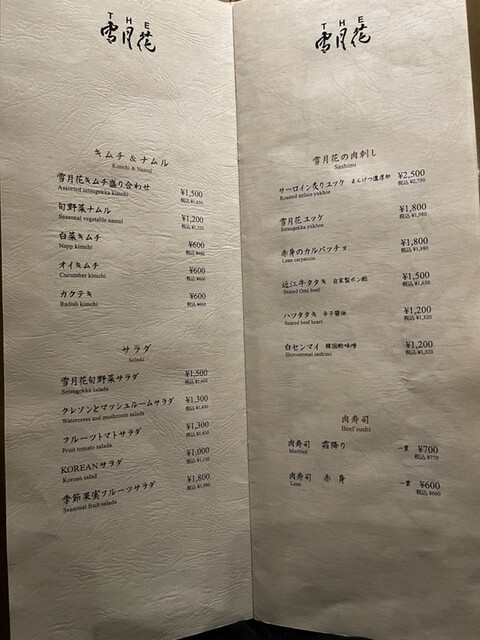 THE
雪月花
キムチ & ナムル
Kimchi & Namul
雪月花キムチ盛り合わせ ¥1,500
Assorted setsugekka kimchi 税込 ¥1,650
旬野菜ナムル ¥1,200
Seasonal vegetable namul 税込 ¥1,320
白菜キムチ ¥600
Napp kimchi 税込 ¥660
オイキムチ ¥600
Cucumber kimchi 税込 ¥660
カクテキ ¥600
Radish kimchi 税込 ¥660
サラダ
Salada
雪月花旬野菜サラダ ¥1,500
Setsugekka salada 税込 ¥1,650
クレソンとマッシュルームサラダ ¥1,300
Watercress and mushroom salada 税込 ¥1,430
フルーツトマトサラダ ¥1,300
Fruit tomato salada 税込 ¥1,430
KOREANサラダ ¥1,000
Korean salad 税込 ¥1,100
季節果実フルーツサラダ ¥1,800
Seasonal fruit salada 税込 ¥1,980
THE
雪月花
雪月花の肉刺し
Sashimi
サーロイン炙りユッケ まんげつ濃厚卵 ¥2,500
Roasted sirloin yukhoe 税込 ¥2,750
雪月花ユッケ ¥1,800
Setsugekka yukhoe 税込 ¥1,980
赤身のカルパッチョ ¥1,800
Lean carpaccio 税込 ¥1,980
近江牛タタキ 自家製ポン酢 ¥1,500
Seared Omi beef 税込 ¥1,650
ハツタタキ 辛子醤油 ¥1,200
Seared beef heart 税込 ¥1,320
白センマイ 韓国酢味噌 ¥1,200
Shirosenmai sashimi 税込 ¥1,320
肉寿司
Beef sushi
肉寿司 霜降り 一貫 ¥700
Marbled 税込 ¥770
肉寿司 赤身 一貫 ¥600
Lean 税込 ¥660